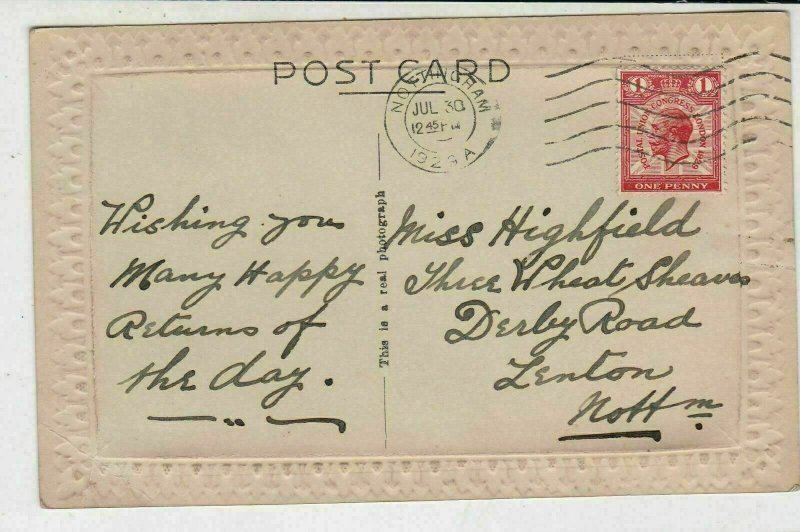 POST CARD
NOTTINGHAM
JUL 30
12 45 PM
1929 A
1 1
POSTAL UNION CONGRESS LONDON 1929
ONE PENNY
Wishing you
Many Happy
Returns of
the day.
This is a real photograph
Miss Highfield
Three Wheat Sheaves
Derby Road
Lenton
Nottm